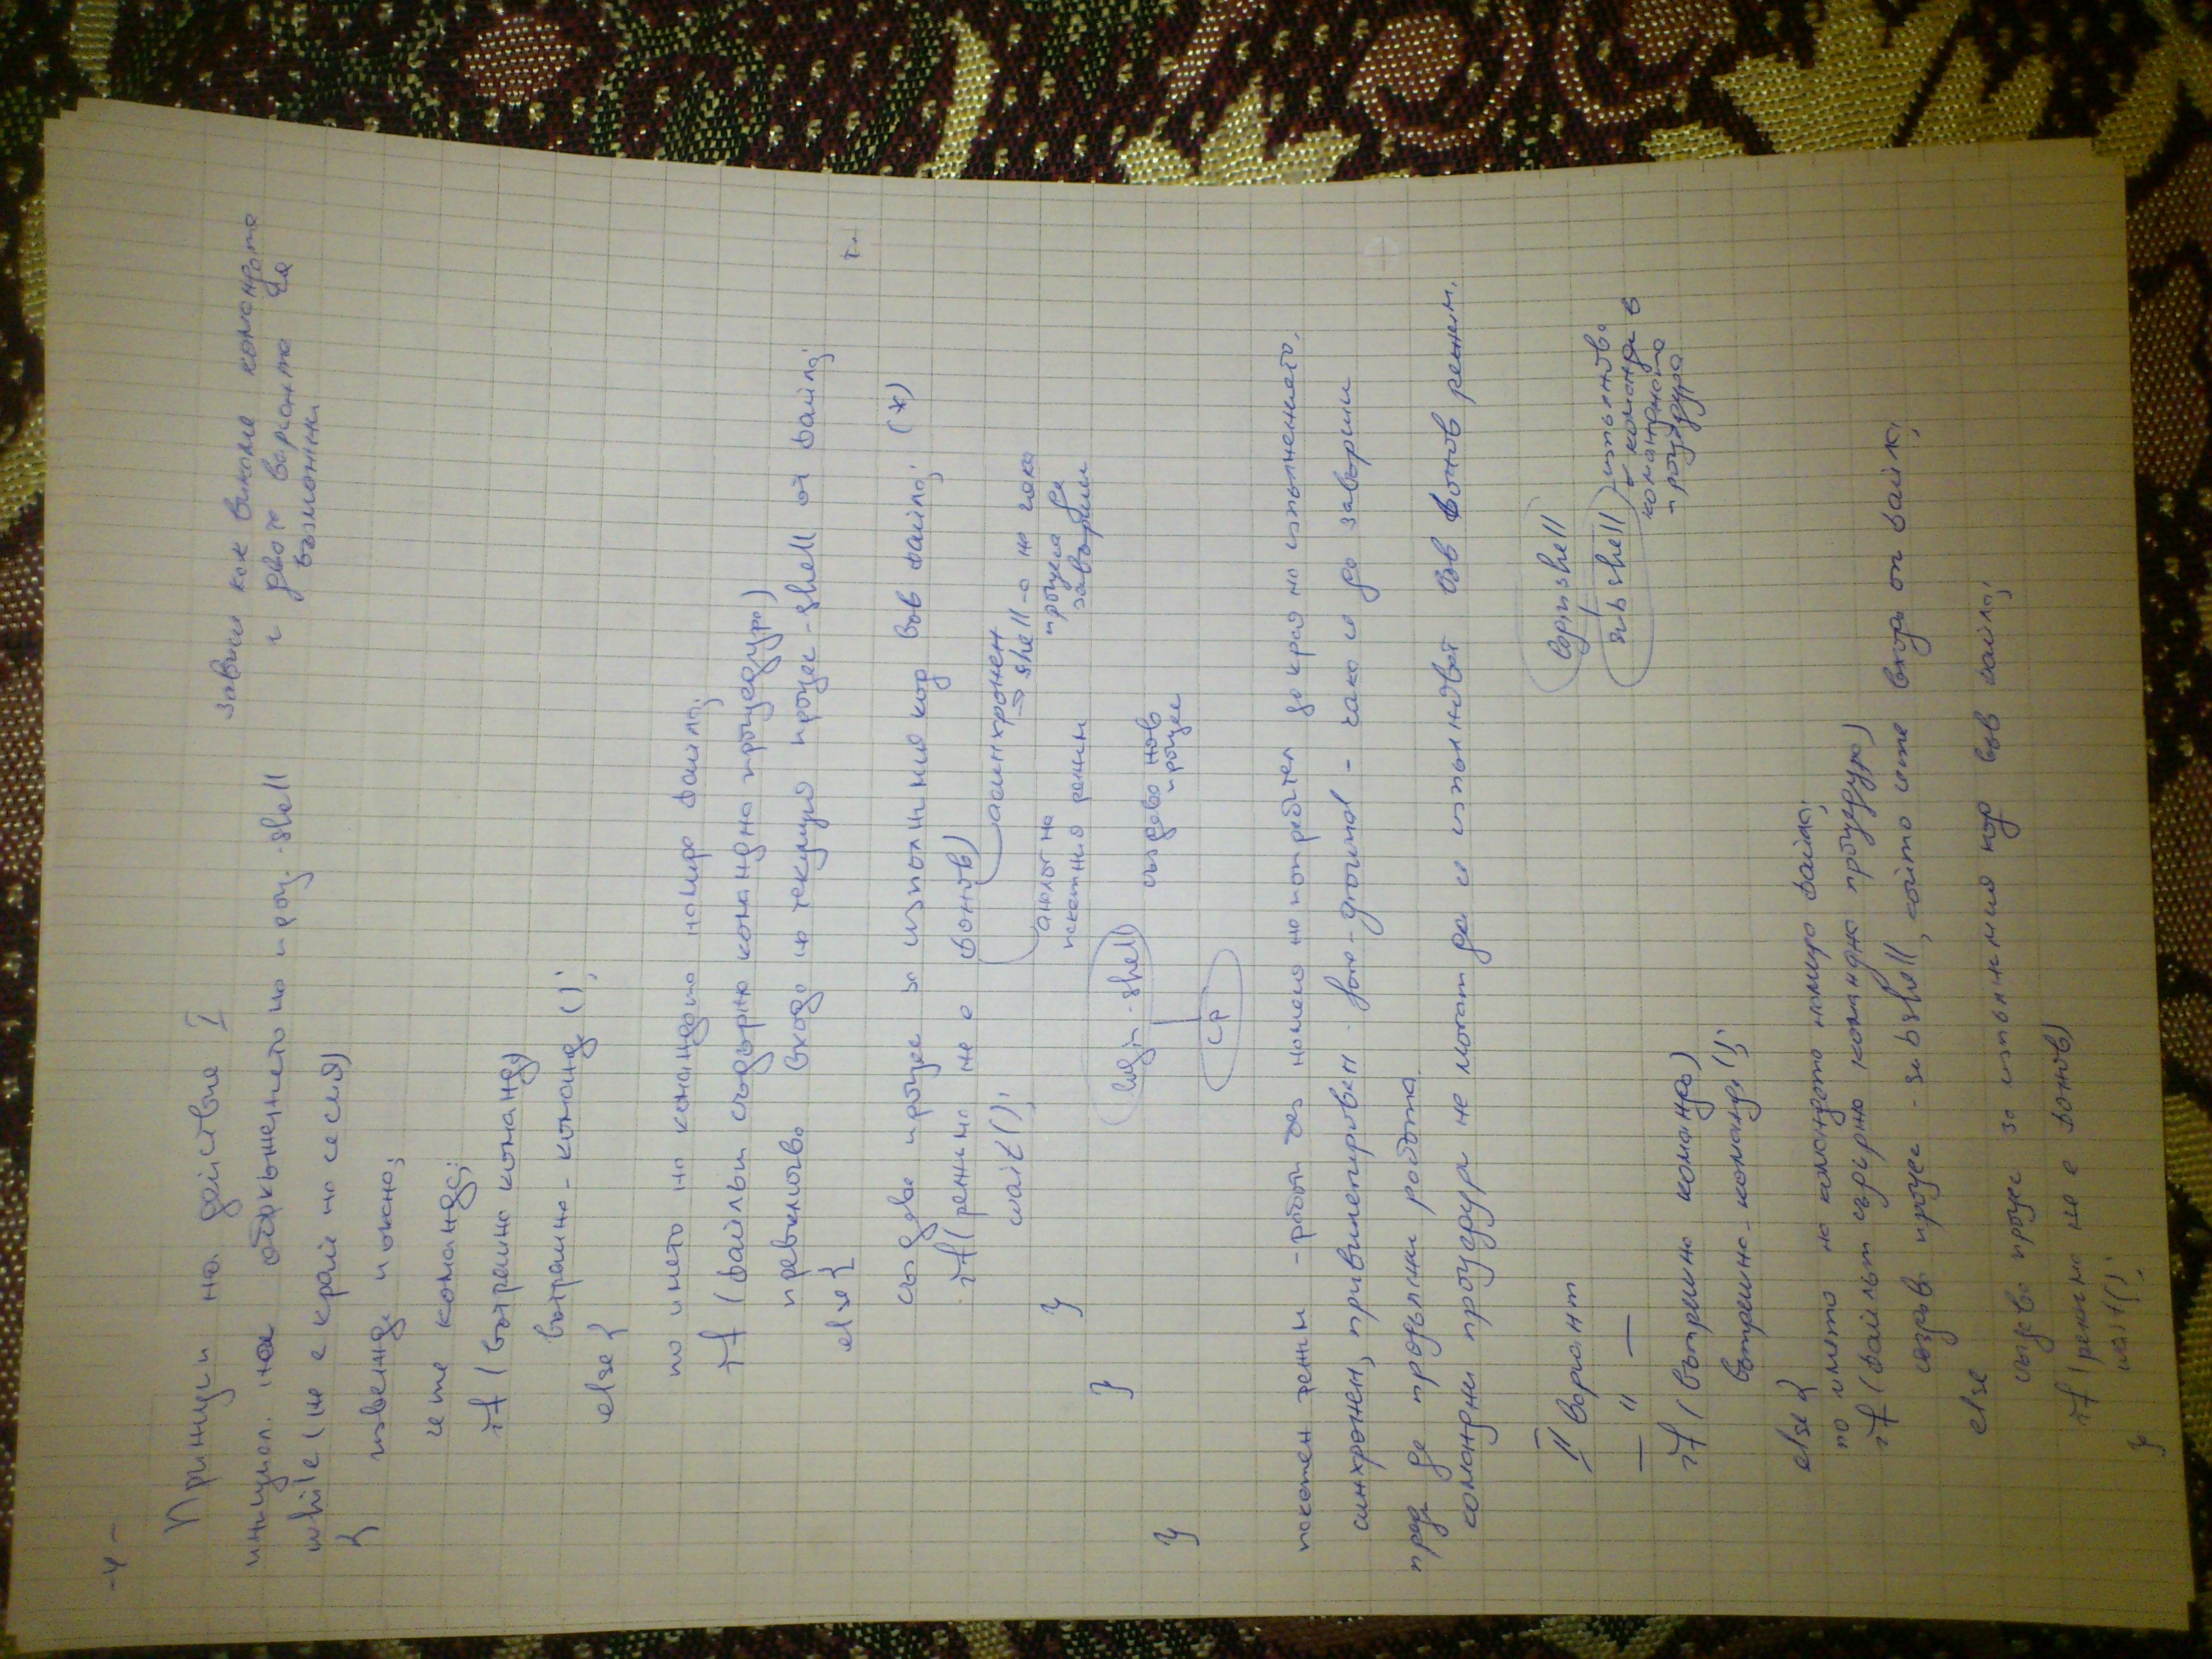 -4-
Принцип на действие I
инициал. на обкръжението на проц. shell
зависи как викаме командата
и двата варианта са възможни
while (не е край на сесия)
{ извежда покана;
чете команда;
if (вътрешна команда)
вътрешна-команда();
else {
по името на командата намира файла;
if (файлът съдържа командна процедура)
превключва входа на текущия процес-shell от файла;
else {
създава процес за изпълнимия код във файла; (*)
if (режима не е фонов)
асинхронен
⇒ shell-а не чака процеса да завърши
wait();
аналог на пакетния режим
}
}
}
login-shell
създава нов процес
cp
пакетен режим - работи без намеса на потребител до края на изпълнението.
синхронен, привилегирован fore-ground - чака се да завърши
преди да продължи работа.
командни процедури не могат да се изпълняват във фонов режим.
II вариант
login shell
sub shell
изпълнява команди в командната процедура
— " —
if (вътрешна команда)
вътрешна-команда();
else {
по името на командата намира файла;
if (файлът съдържа командна процедура)
създава процес - subshell, който чете входа от файла;
else
създава процес за изпълнимия код във файла;
if (режима не е фонов)
wait();
}